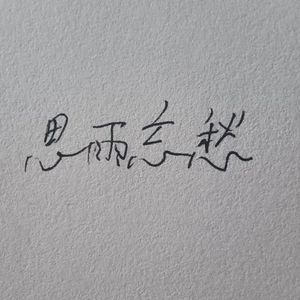 思雨忘愁